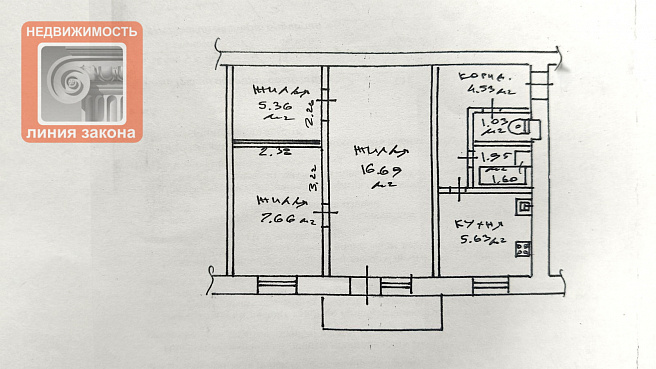 НЕДВИЖИМОСТЬ
ЛИНИЯ ЗАКОНА
ЖИЛАЯ
5.36
м2
2.26
2.32
3.22
ЖИЛАЯ
7.66 м2
ЖИЛАЯ
16.69
м2
КОРИД.
4.53 м2
1.03
м2
1.95
м2
1.60
КУХНЯ
5.63 м2